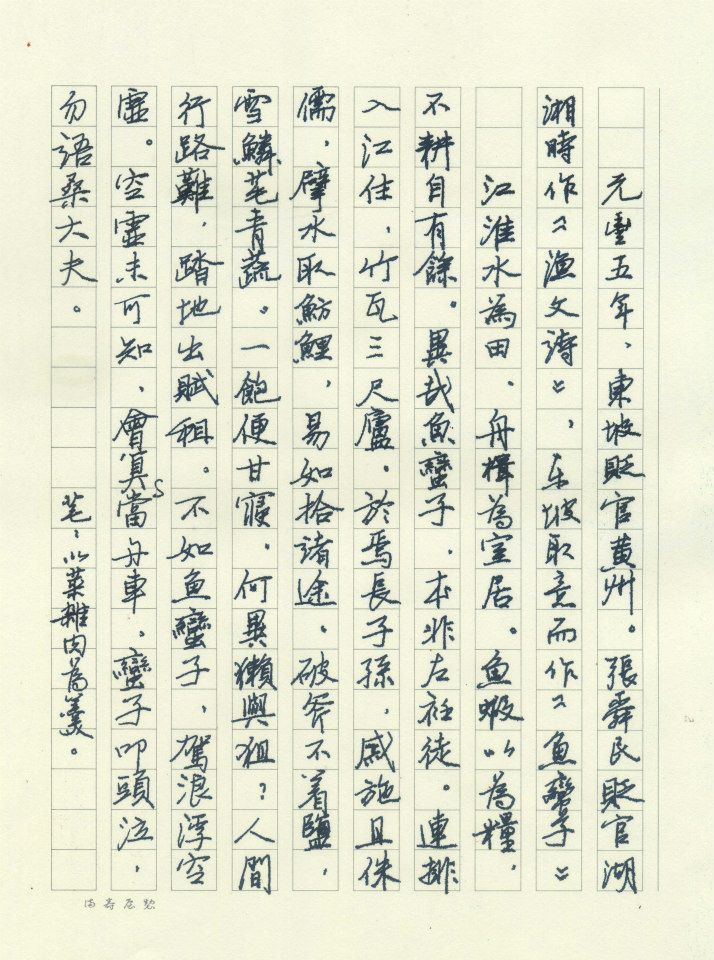 元豐五年，東坡貶官黃州。張舜民貶官湖
湘時作《漁父詩》，东坡取意而作《魚蠻子》
江淮水為田，舟楫為室居。魚蝦以為糧，
不耕自有餘。異哉魚蠻子，本非左衽徒。連排
入江住，竹瓦三尺廬。於焉長子孫，戚施且侏
儒，擘水取魴鯉，易如拾諸途。破釜不着鹽，
雪鱗芼青蔬。一飽便甘寢，何異獺與狙？人間
行路難，踏地出賦租。不如魚蠻子，駕浪浮空
虛。空虛未可知，會算當舟車。蠻子叩頭泣，
勿語桑大夫。 芼：以菜雜肉為羹。
満寿屋製